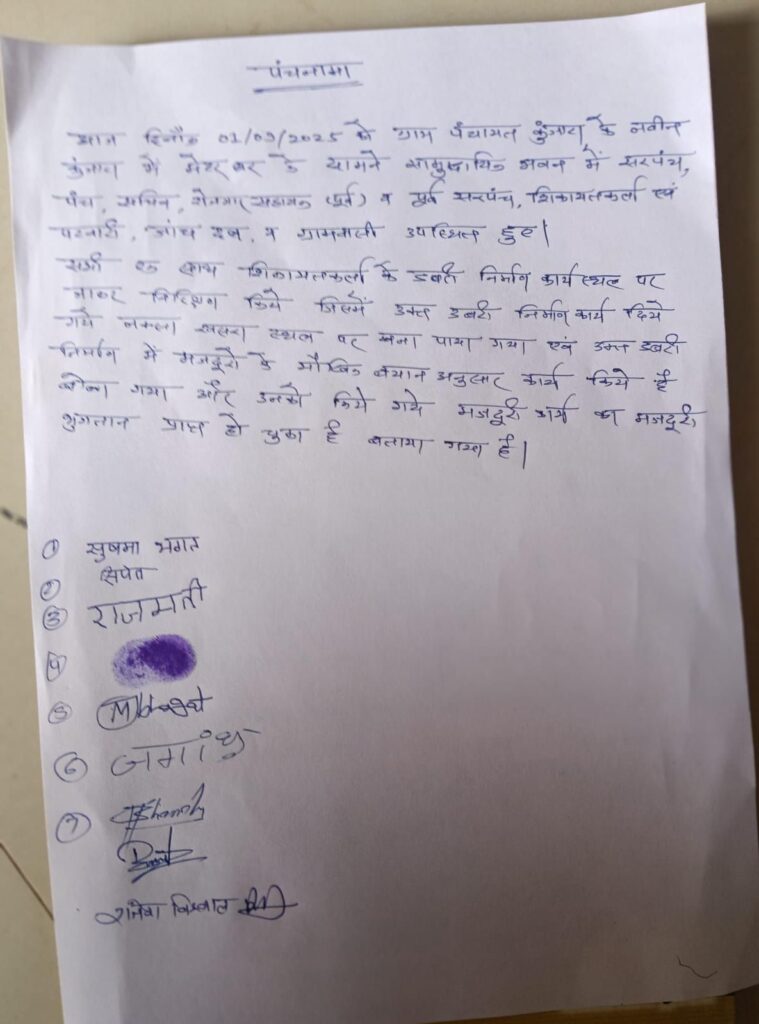 पंचनामा
आज दिनाँक 01/09/2025 को ग्राम पंचायत कुंजारा के नवीन
कुंजारा में के सामने सामुदायिक भवन में सरपंच,
पंच, सचिव, रोजगार सहायक (पूर्व) व पूर्व सरपंच, शिकायतकर्ता एवं
पटवारी, जांच दल, व ग्रामवासी उपस्थित हुए।
सभी एक साथ शिकायतकर्ता के डबरी निर्माण कार्य स्थल पर
जाकर निरिक्षण किये जिसमें उक्त डबरी निर्माण कार्य दिये
गये नक्शा खसरा स्थल पर बना पाया गया एवं उक्त डबरी
निर्माण में मजदूरों के मौखिक बयान अनुसार कार्य किये है
बोला गया और उनको किये गये मजदूरी कार्य का मजदूरी
भुगतान प्राप्त हो चुका है बताया गया है।
① सुषमा भगत
②
③ राजमती
④
⑤ Mbhagat
⑥
⑦